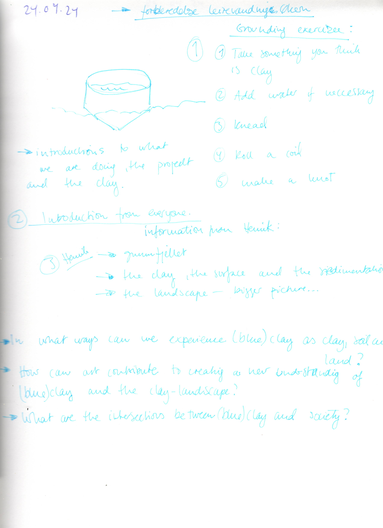 24.04.24
→ forberedelse leirevandring
Grounding exercise:
① ① Take something you think
is clay
② Add water if necessary
③ knead
④ Roll a coil
⑤ make a knot
→ introductions to what
we are doing, the project
and the clay.
② Introduction from everyone.
Information from Henrik:
③ Henrik →
→ the clay, the surface and the sedimentation
→ the landscape — bigger picture...
→ In what ways can we experience (blue) clay as clay, soil and
land?
→ How can art contribute to creating a new understanding of
(blue) clay and the clay-landscape?
→ What are the intersections between (blue) clay and society?